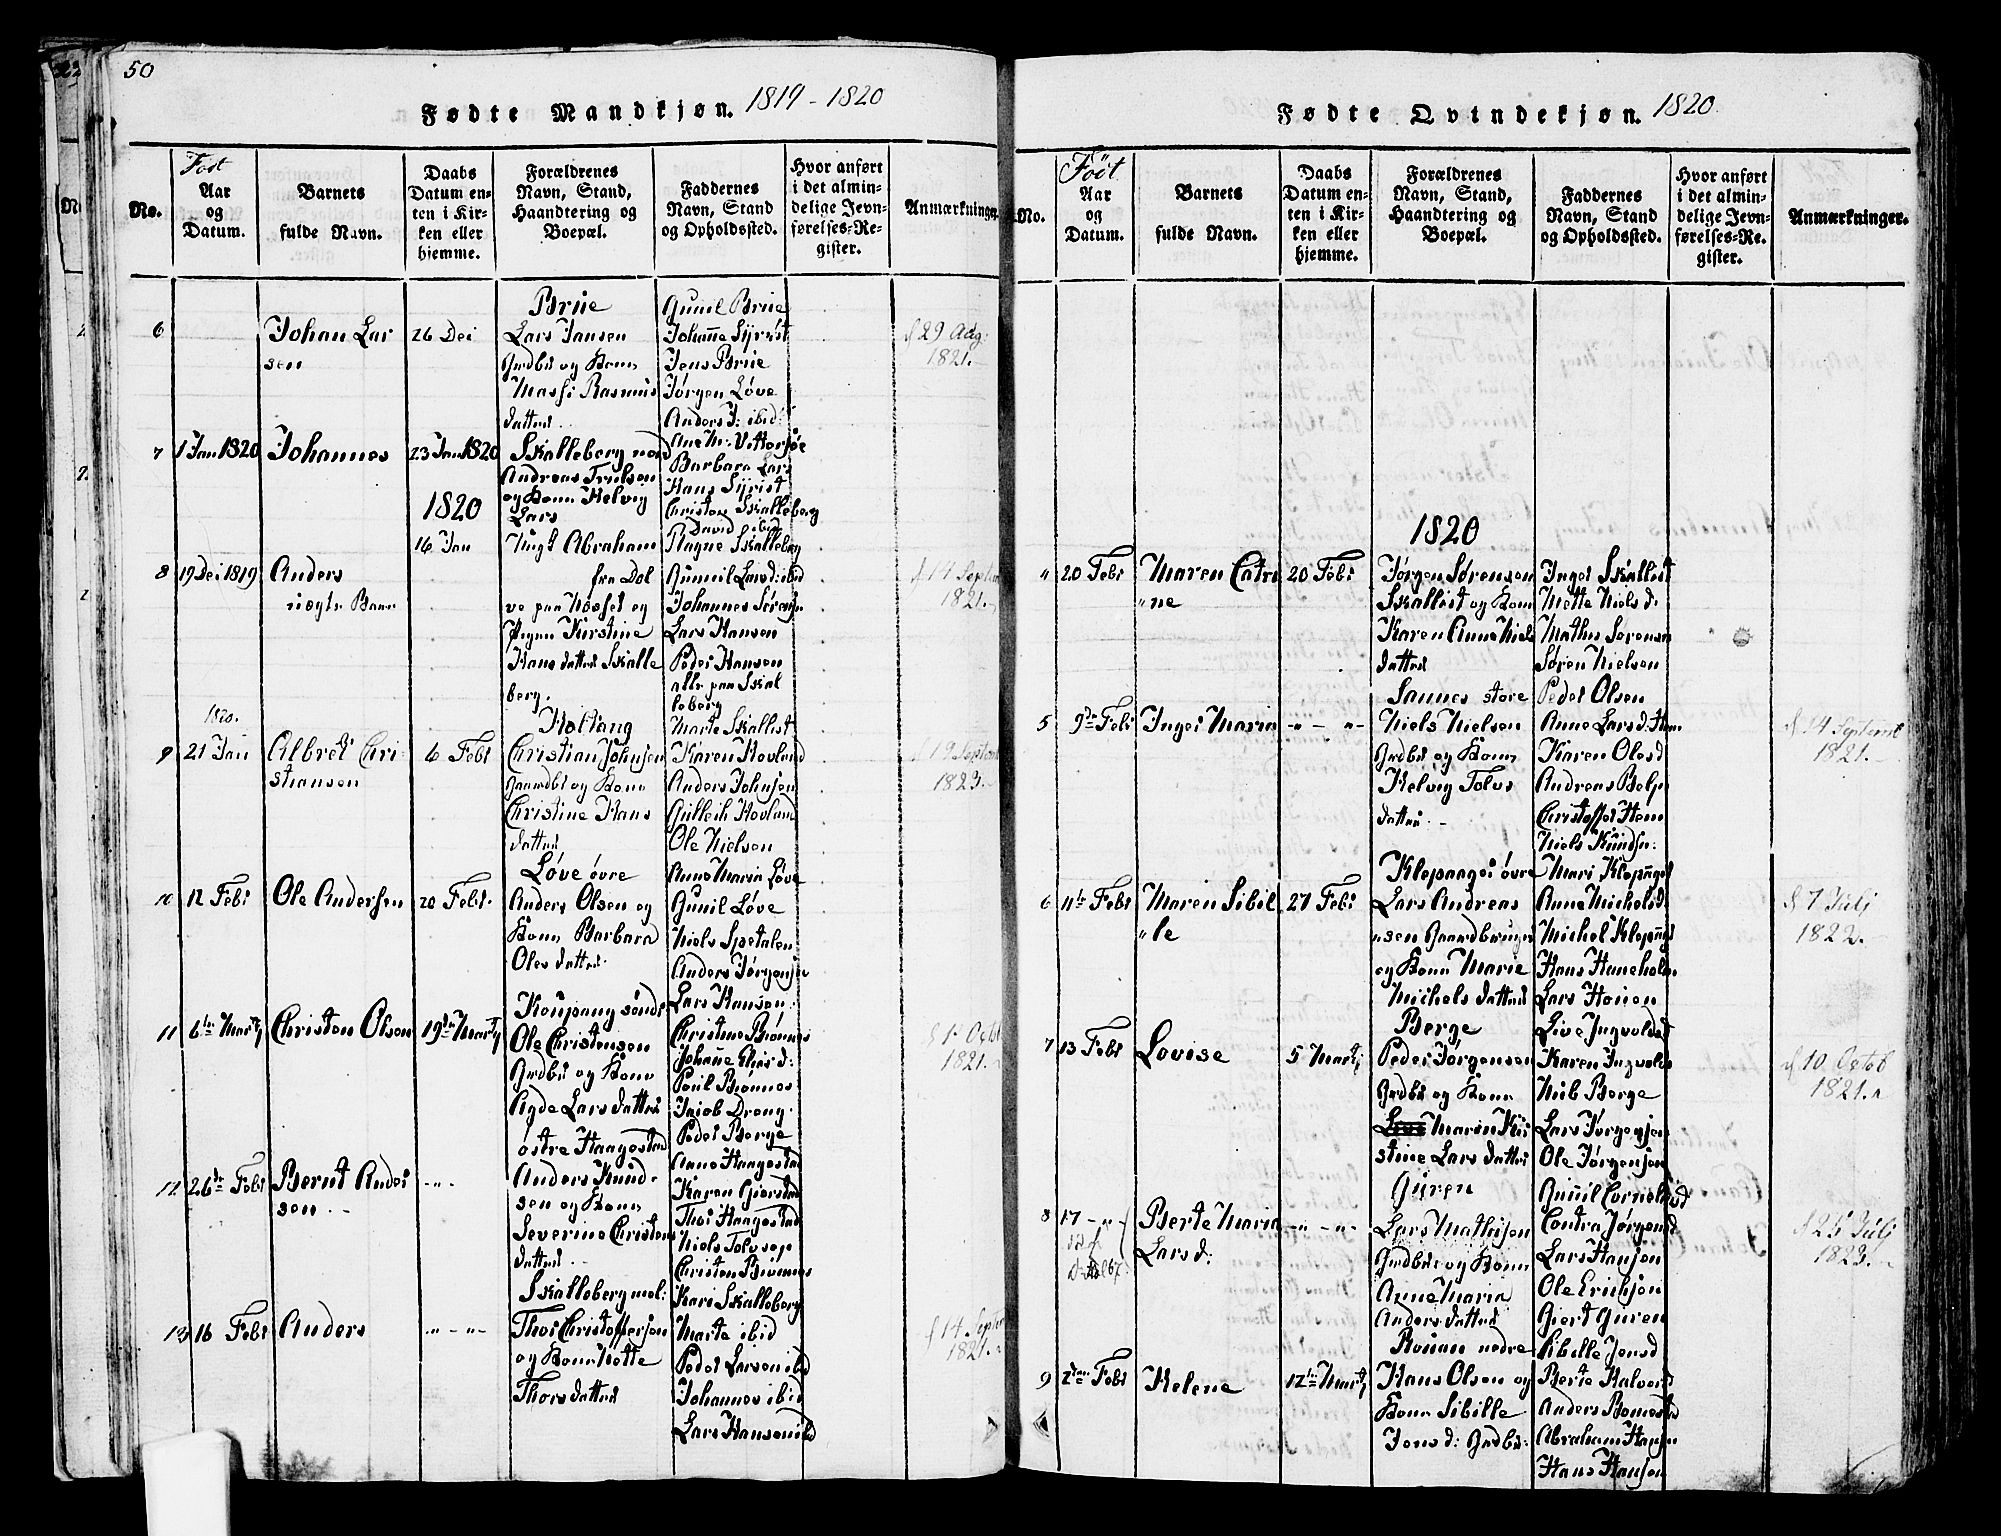 50
Fødte Mandkjøn. 1819-1820
No.
Født
Aar
og
Datum.
Barnets
fulde Navn.
Daabs
Datum en-
ten i Kir-
ken eller
hjemme.
Forældrenes
Navn, Stand,
Haandtering og
Boepæl.
Faddernes
Navn, Stand
og Opholdssted.
Hvor anført
i det almin-
delige Jevn-
førelses-Re-
gister.
Anmærkninger.
6
Johan Lar
sen
26 Dec
Brúe
Lars Jansen
Grdbr og Kone
Massi Rasmus
datter
Gunil Brúe
Johanne
Jens Brúe
Jørgen Løve
Anders J: ibid
29 Aug:
1821.
7
1 Jan 1820
Johannes
23 Jan 1820
Skalleberg nord
Andreas Trulsen
og Kone Helvig
Lars
Ane M: Vittersøe
Barbara Lars
Hans
Christen Skalleberg
David ibid
1820
16 Jan
8
19 Dec 1819
Anders
uægte Barn
Ungk Abraham
fra Dol
ve paa Næsset og
Pigen Kirstine
Hans datter Skalle
berg.
Ragne Skalleberg
Gunnil Larsd: ibid
Johannes Sørensen
Lars Hansen
Peder Hansen
alle paa Skal
leberg
14 Septem
1821.
1820.
9
21 Jan
Albret Chri-
stiansen
6 Febr
Holtang
Christian Johnsen
Gaardbr og Kone
Christine Hans
datter
Marte Skallist
Karen Hovland
Anders Johnsen
Gullich Hovland
Ole Nielsen
19 Septem
1823.
10
12 Febr
Ole Andersen
20 Febr.
Løve øvre
Anders Olsen og
Kone Barbara
Oles datter
Anne Maria Løve
Gunil Løve
Niels Spetalen
Anders Jørgensen
Lars Hansen
11
6te Martj
Christen Olsen
19de Martj
Kaupang søndr
Ole Christensen
Grdbr og Kone
Agde Lars datter
Christine Brønnes
Johanne Elias d:
Poul Brønnes
Jacob Drong.
Peder Berge
1 Octb
1821.
12
26de Febr
Bernt Ander
sen
østre Haagestad
Anders Knud-
sen og Kone
Severine Christens
datter
Anne Haagestad
Karen Gierstad
Thor Haagestad
Niels Tolvsep
Christen Brønnes
13
16 Febr
Anders
Skalleberg mel:
Thor Christoffersen
og Kone Mette
Thors datter
Kari Skalleberg
Marte ibid
Peder Larsen ibid
Johannes ibid
Lars Hansen ibid
14 Septem
1821.
Fødte Qvindekjøn. 1820.
No.
Født
Aar
og
Datum.
Barnets
fulde Navn.
Daabs
Datum en-
ten i Kir-
ken eller
hjemme.
Forældrenes
Navn, Stand,
Haandtering og
Boepæl.
Faddernes
Navn, Stand
og Opholdssted.
Hvor anført
i det almin-
delige Jevn-
førelses-Re-
gister.
Anmærkninger.
1820
4
20 Febr
Maren Catri
"ne
20 Febr
Jørgen Sørensen
Skallist og Kone
Karen Anne Niels
datter
Inger Skallist
Mette Niels d.
Mathis Sørensen
Søren Nielsen
Peder Olsen
5
9de Febr
Inger Maria
Sannes store
Niels Nielsen
Grdbr og Kone
Helvig Tolvs
datter
Anne Lars d: Hem
Karen Oles d
Andreas
Christoffer Hem
Niels Knudsn:
14 Septemb
1821.
6
11te Febr
Maren Sibil
"le
27 Febr
Klepaager øvre
Lars Andreas
"sen Gaardbruger
og Kone Marie
Michels datter
Mari Klepager
Anne Michelsd
Michel Klepager
Hans Haneholm
Lars Hoven
7 Julj
1822.
7
13 Febr
Lovise
5 Martj
Berge
Peder Jørgensen
Grdbr og Kone
Maren Kir
stine Lars datter
Live Ingvoldsd
Karen Ingvolds
Berge
Lars Jørgensen
Ole Jørgensen
10 Octob
1821.
8
17
Berte Maria
Lars d:
Guren
Lars Mathisen
Grdbr og Kone
Anne Maria
Anders datter
Gunnil Cornelisd
Contra Jørgensd
Lars Hansen
Ole Erichsen
Giert Guren
25 Julj
1823.
9
2den Febr
Helene
12te Martj
Roman nedre
Hans Olsen og
Kone Sibille
Jens d: Grdbr:
Sibille Jensd
Berte Halvorsd
Anders Bomestad
Abraham Hansen
Hans Hansen